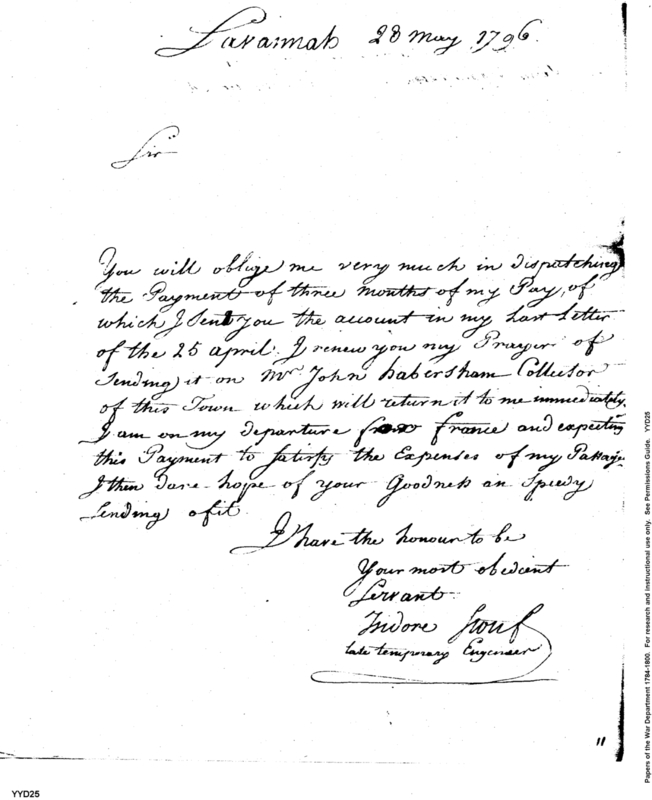 Savannah 28 may 1796.
Sir
You will oblige me very much in dispatching
the Payment of three months of my Pay, of
which I Sent you the account in my Last Letter
of the 25 april. I renew you my Prayer of
Sending it on Mr. John habersham Collector
of this Town which will return it to me immediately.
I am on my departure for france and expecting
this Payment to Satisfy the Expenses of my Passage
I then dare hope of your Goodness an Speedy
Sending of it
I have the honour to be
Your most obedient
Servant
Isidore
late temporary Engeneer
11
YYD25
Papers of the War Department 1784-1800. For research and instructional use only. See Permissions Guide. YYD25